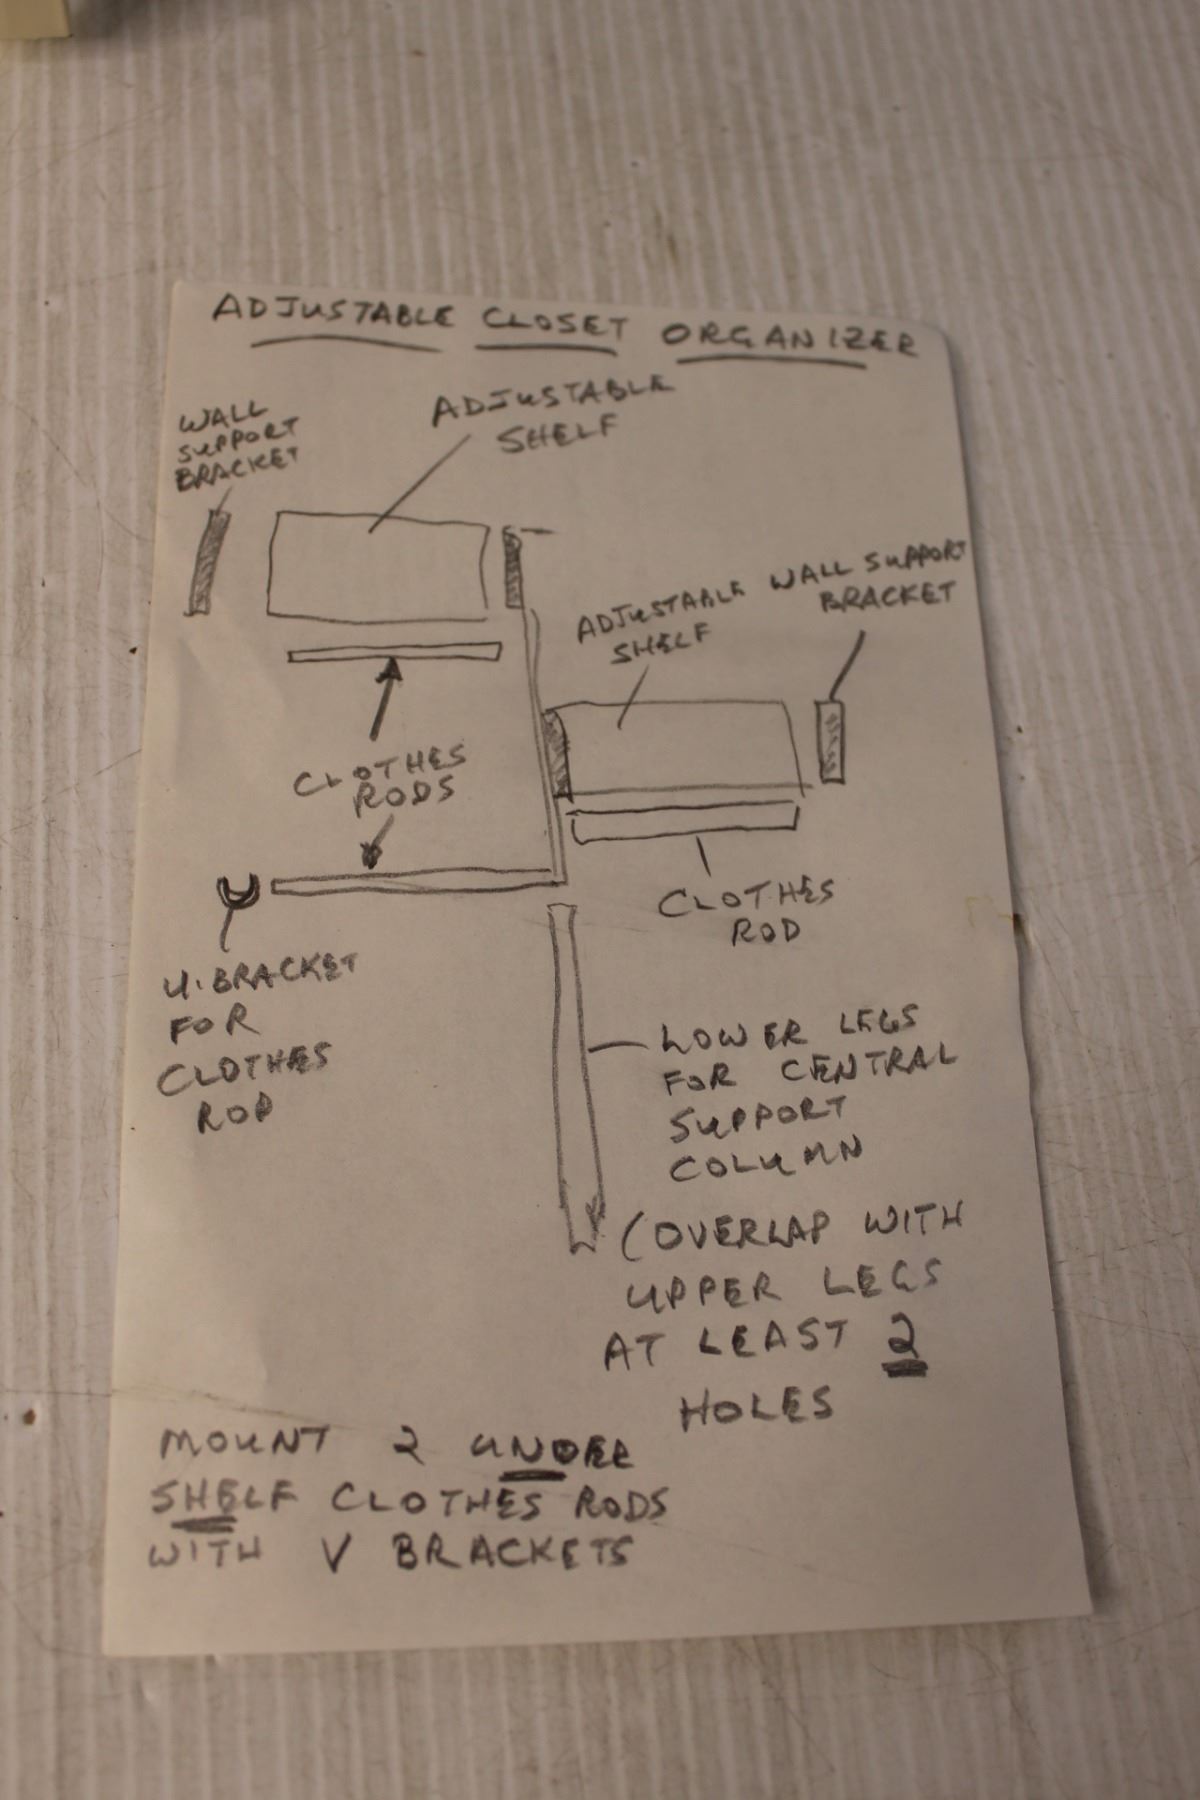 ADJUSTABLE CLOSET ORGANIZER
WALL
SUPPORT
BRACKET
ADJUSTABLE
SHELF
ADJUSTABLE
SHELF
WALL SUPPORT
BRACKET
CLOTHES
RODS
CLOTHES
ROD
U-BRACKET
FOR
CLOTHES
ROD
LOWER LEGS
FOR CENTRAL
SUPPORT
COLUMN
(OVERLAP WITH
UPPER LEGS
AT LEAST 2
HOLES
MOUNT 2 UNDER
SHELF CLOTHES RODS
WITH V BRACKETS